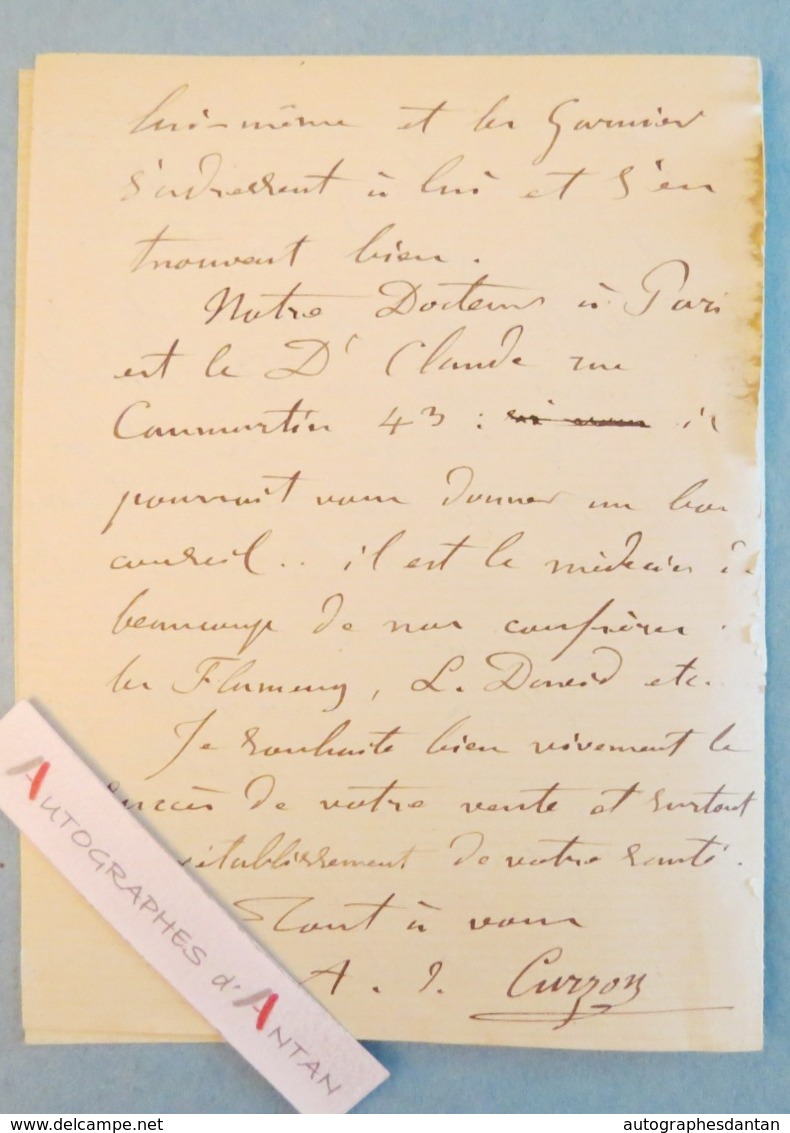 lui-même et les Garnier
s'adressent à lui et s'en
trouvent bien.
Notre Docteur à Paris
est le Dr Claude rue
Caumartin 43 : il
pourrait vous donner un bon
conseil.. il est le médecin de
beaucoup de nos confrères.
les Flameng, L. David etc.
Je souhaite bien vivement le
succès de votre vente et surtout
rétablissement de votre santé.
Tout à vous
A. d. Curzon
AUTOGRAPHES d'ANTAN
www.delcampe.net
autographesdantan